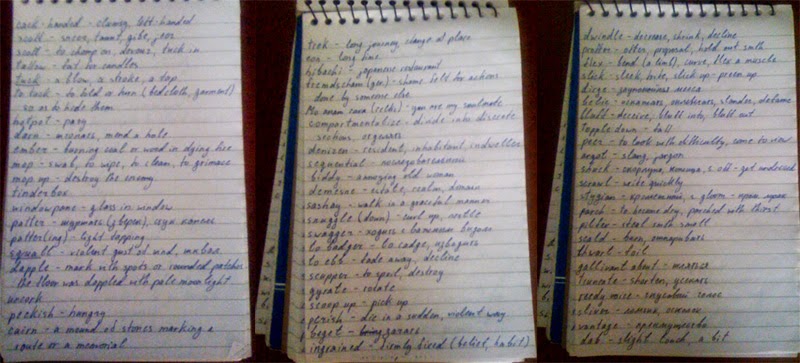 cack-handed - clumsy, left-handed
scoff - sneer, taunt, gibe, jeer
scoff - to chomp on, devour, tuck in
tallow - fat for candles
tuck - a blow, a stroke, a tap
to tuck - to fold or turn (bedcloth, garment)
so as to hide them
hotpot - рагу
darn - mend a hole
ember - burning coal or wood in dying fire
mop - swab, to wipe, to clean, to grimace
mop up - destroy the enemy
tinderbox
windowpane - glass in window
patter -
patter(ing) - light tapping
squall - violent gust of wind, шквал
dapple - mark with spots or rounded patches
the floor was dappled with pale moonlight
uncork
peckish - hungry
cairn - a mound of stones marking a
route or a memorial
trek - long journey, change of place
eon - long time
hibachi - japanese restaurant
fremdscham (ger.) - shame felt for actions
done by someone else
Mo anam cara (celtic) - you are my soulmate
compartmentalize - divide into discrete
sections,
denizen - resident, inhabitant, indweller
sequential - последовательный
biddy - annoying old woman
demesne - estate, realm, domain
sashay - walk in a graceful manner
snuggle (down) - curl up, nestle
swagger - ходить с важным видом
to badger - to cadge,
to ebb - fade away, decline
scupper - to spoil, destroy
gyrate - rotate
scoop up - pick up
perish - die in a sudden, violent way
beget -
ingrained - firmly fixed (belief, habit)
dwindle - decrease, shrink, decline
proffer - offer, proposal, hold out smth
flex - bend (a limb), curve, flex a muscle
slick - sleek,
dirge - заупокойная месса
belie - slander, defame
bluff - deceive, bluff into, bluff out
topple down - fall
peer - to look with difficulty, come to view
argot - slang, jargon
scrawl - write quickly
stygian - gloom -
parch - to become dry, parched with thirst
pilfer - steal smth small
scald - burn,
thwart - foil
gallivant about -
truncate - shorten,
reedy voice - голос
sliver -
vantage - преимущество
dab - slight touch, a bit